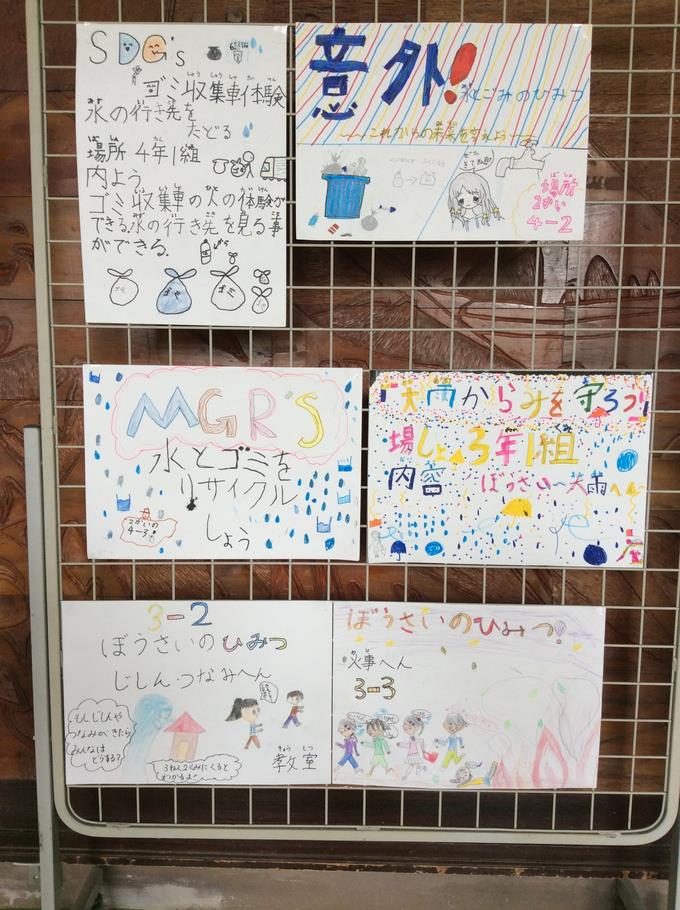 SDG's
ゴミ収集車体験
しゅう しゅう しゃ たいけん
水の行き先を
たどる
場所 4年1組
内よう
ゴミ収集車の人の体験が
できる。水の行き先を見る事
ができる。
意外!
水とごみのひみつ
これからの未来を変えよう
場所
ばしょ
2かい
4-2
MGR'S
水とゴミを
リサイクル
しょう
2かいの
4-3!
「大雨からみを守ろう」
場しょ 3年1組
内容 ぼうさい〜大雨へん
3-2
ぼうさいのひみつ
じしん・つなみへん
もしじしんや
つなみがきたら
みんなは
どうする?
3ねん2くみにくると
わかるよ
きょう しつ
教室
ぼうさいのひみつ!
火事へん
3-3